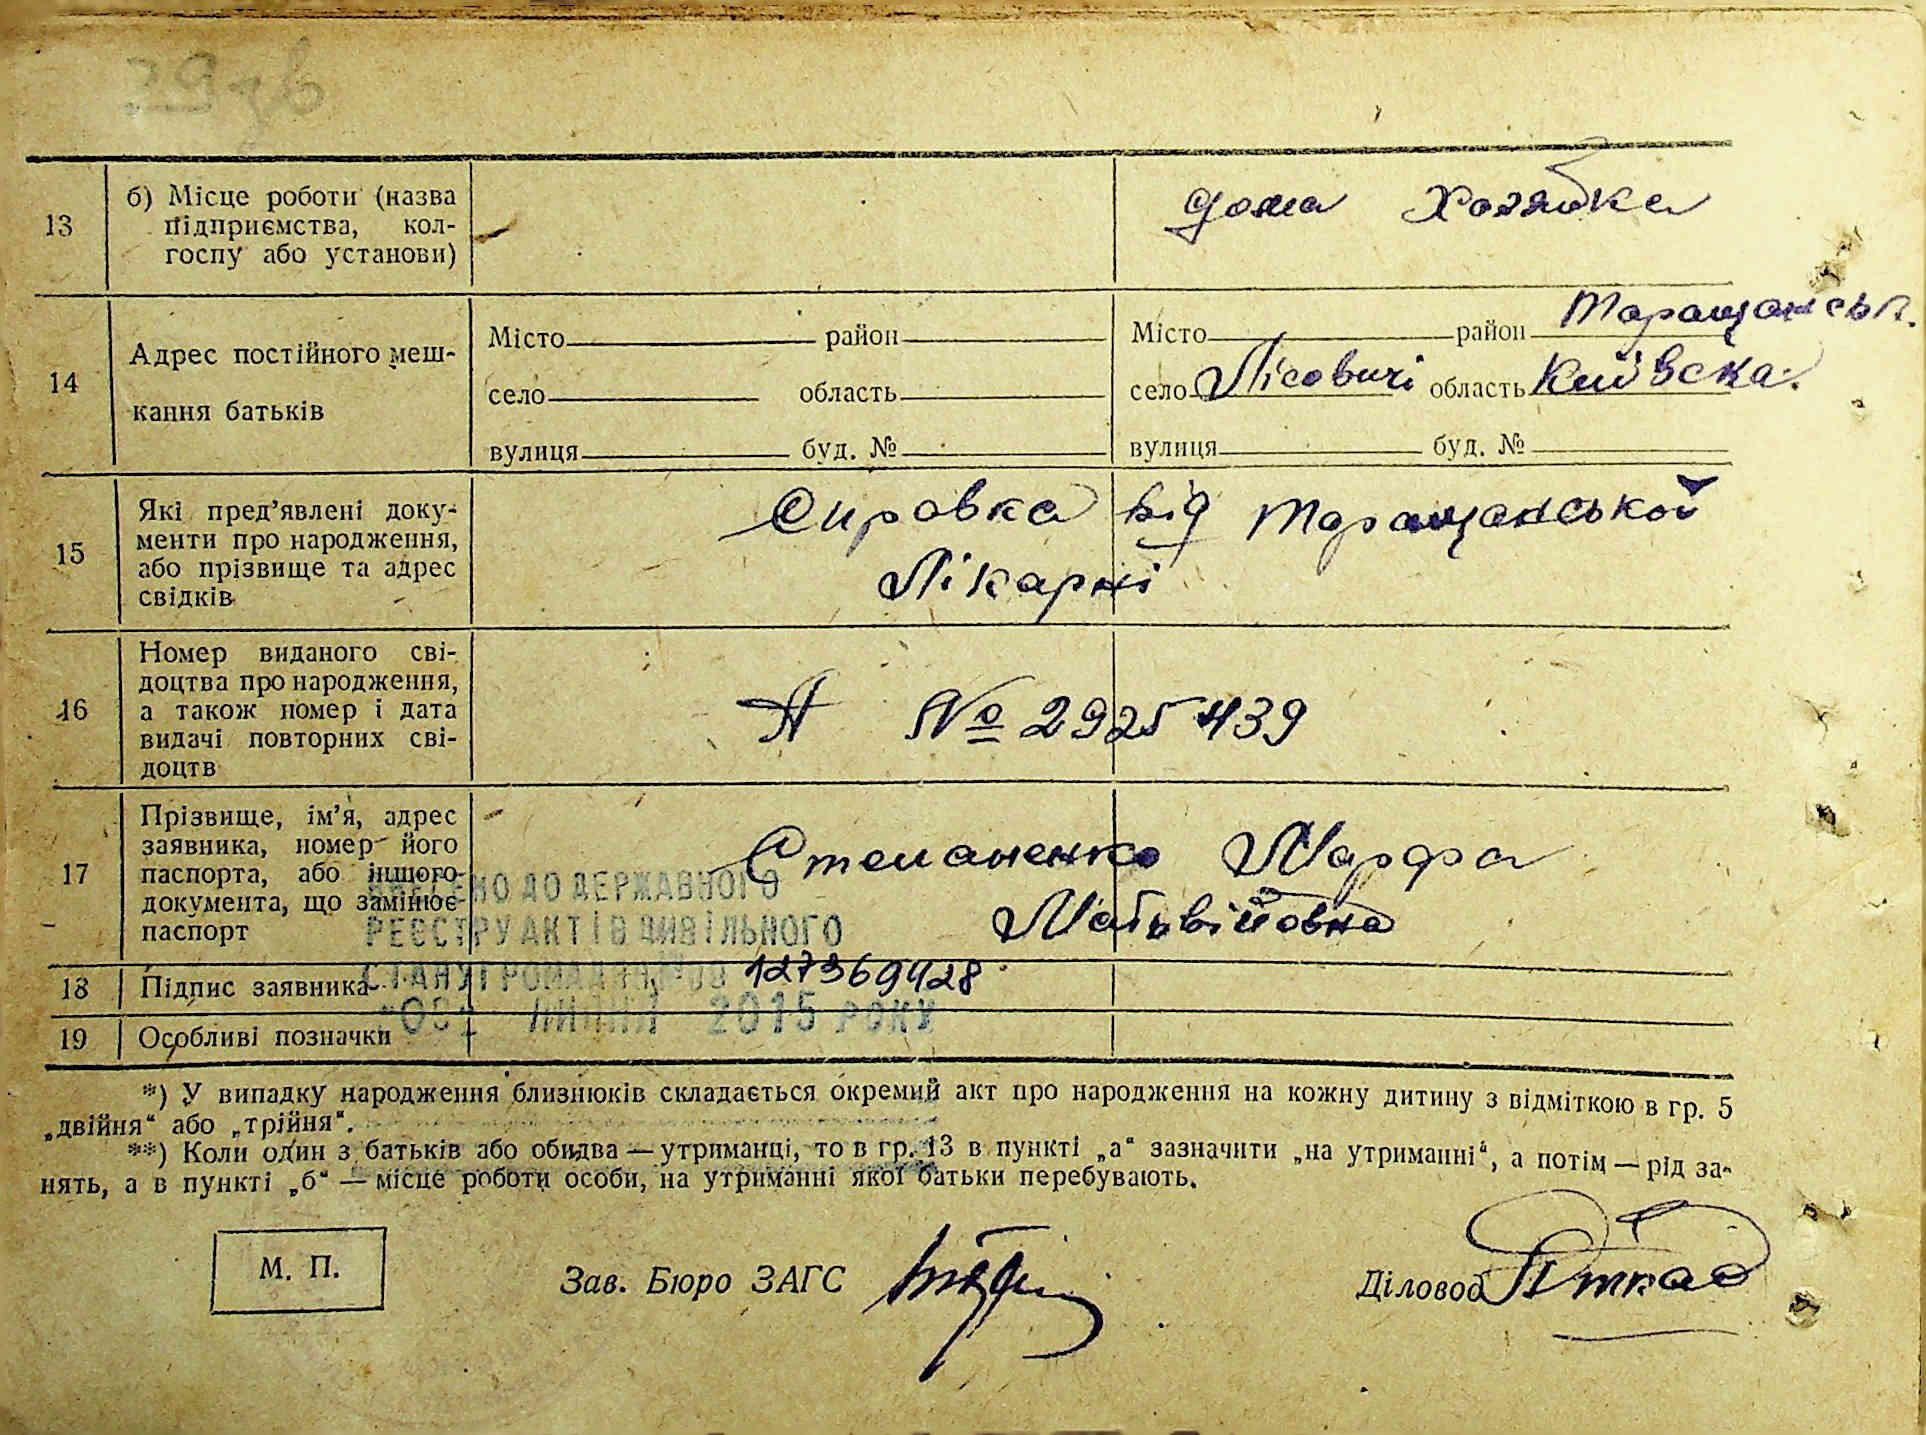 13
б) Місце роботи (назва
підприємства, кол-
госпу або установи)
дома Хозяйка
14
Адрес постійного меш-
кання батьків
Місто район
село область
вулиця буд. №
Місто район Таращанськ.
село Лісовичі область Київська.
вулиця буд. №
15
Які пред’явлені доку-
менти про народження,
або прізвище та адрес
свідків
Справка від Таращанської
Лікарні
16
Номер виданого сві-
доцтва про народження,
а також номер і дата
видачі повторних сві-
доцтв
А № 2925439
17
Прізвище, ім’я, адрес
заявника, номер його
паспорта, або іншого
документа, що замінює
паспорт
Степаненко Марфа
Матьвійовна
ВНЕСЕНО ДО ДЕРЖАВНОГО
РЕЄСТРУ АКТІВ ЦИВІЛЬНОГО
СТАНУ ГРОМАДЯН 127369428
2015 РОКУ
18
Підпис заявника
19
Особливі позначки
*) У випадку народження близнюків складається окремий акт про народження на кожну дитину з відміткою в гр. 5
„двійня“ або „трійня“.
**) Коли один з батьків або обидва — утриманці, то в гр. 13 в пункті „а“ зазначити „на утриманні“, а потім — рід за-
нять, а в пункті „б“ — місце роботи особи, на утриманні якої батьки перебувають.
М. П.
Зав. Бюро ЗАГС
Діловод